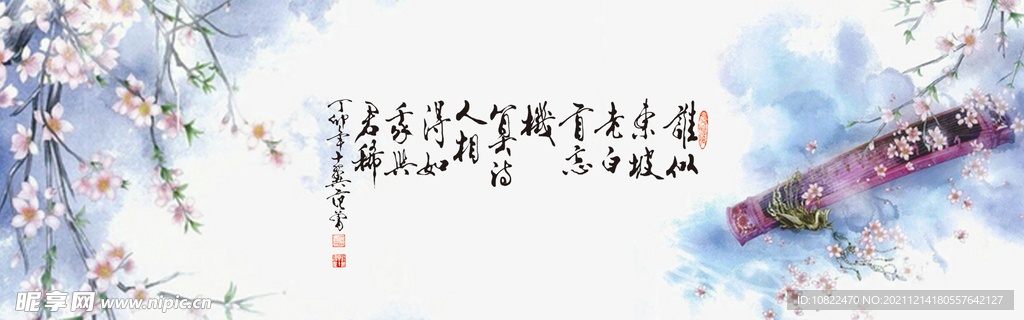 誰似
東坡
老白
首忘
機
算詩
人相
得如
我與
君稀
丁卯年十
昵享网 www.nipic.cn
ID:10822470 NO:20211214180557642127